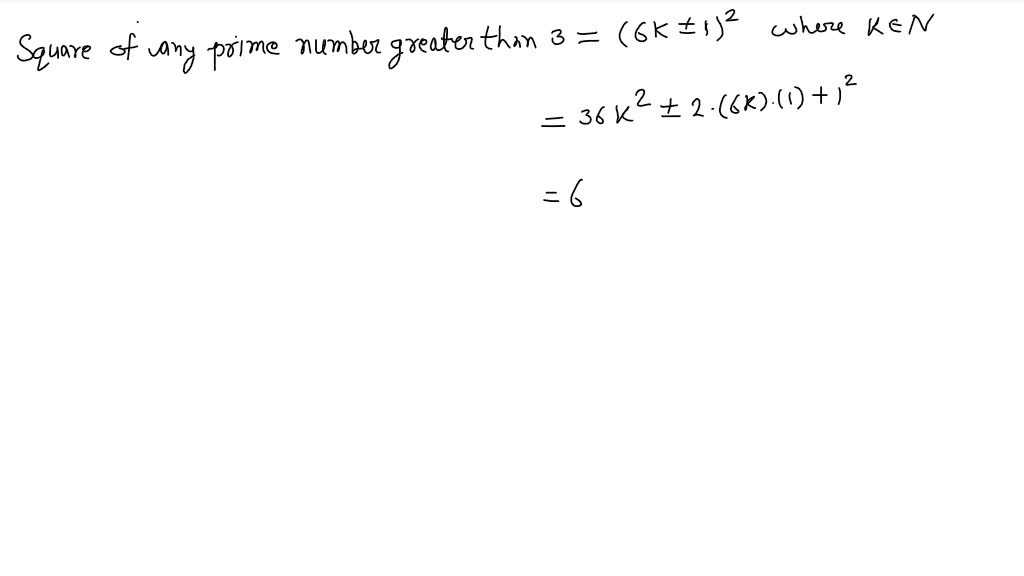 Square of any prime number greater than 3 = (6K ± 1)² where K ∈ N
= 36K² ± 2·(6K)·(1) + 1²
= 6